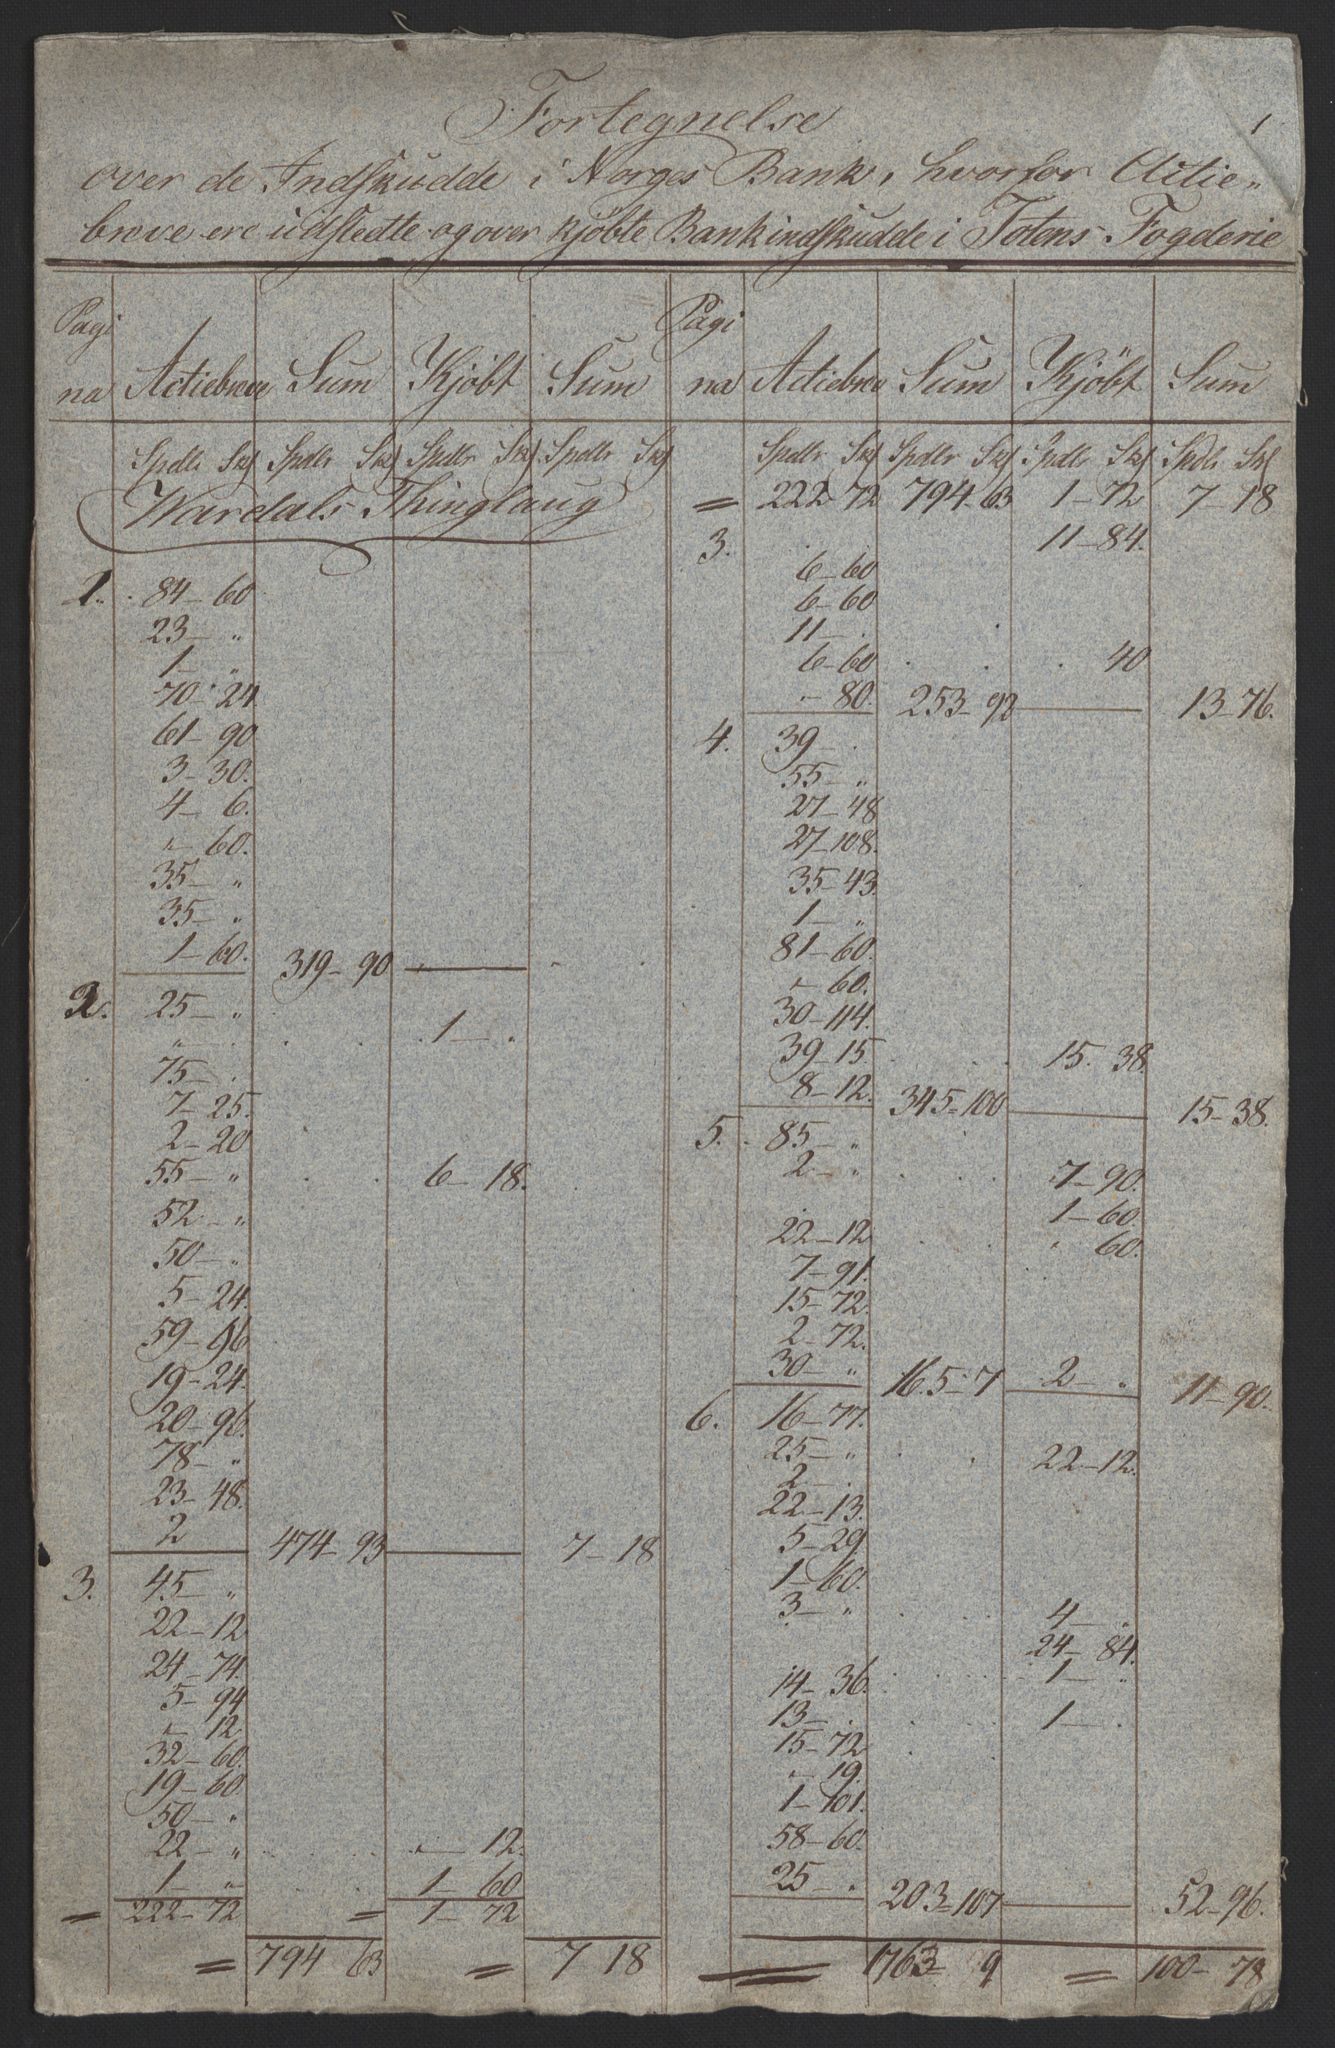 1
Fortegnelse
over de Indskudde i Norges Bank, hvorfor Actie-
breve ere udstedte og over kjöbte Bankindskudde i Totens Fogderie
Pagi
na Actiebreve Sum Kjöbt Sum
Spdlr Sk Spdlr Sk Spdlr Sk Spdlr Sk
Wardals Thinglaug
1. 84-60
23- "
1- "
70-24
61-90
3-30.
4-6.
"-60.
35- "
35- "
1-60. 319-90
2. 25- "
" 1-
75-
7-25.
2-20
55- " 6-18.
52- "
50- "
5-24.
59-96
19-24.
20-96.
78- "
23-48.
2 474-93 7-18
3. 45- "
22-12
24-74.
5-94
"-12
32-60.
19-60.
50- "
22- " "-12.
1- " 1-60
= 222-72 = 1-72
= 794 63 = 7 18
Pagi
na Actiebreve Sum Kjöbt Sum
Spdlr Sk Spdlr Sk Spdlr Sk Spdlr Sk
= 222-72 794-63 1-72 7-18
3. 11-84.
6-60
6-60
11-
6-60 40
"-80. 253-92 13-76.
4. 39-
55- "
27-48
27-108.
35-43.
1- "
81-60.
"-60.
30-114.
39-15 15. 38.
8-12. 345-100 15-38.
5. 85- "
2- " 7-90.
1-60.
22-12 " 60.
7-91.
15-72.
2-72.
30- " 165-7 2- " 11-90.
6. 16-77.
25- " 22-12.
2-
22-13.
5-29
1-60.
3- " 4-
24-84.
14-36. 1- "
13- 1-
15-72
"-19.
1-101.
58-60.
25- " 203-107 52-96.
1763- 9 = 100-78